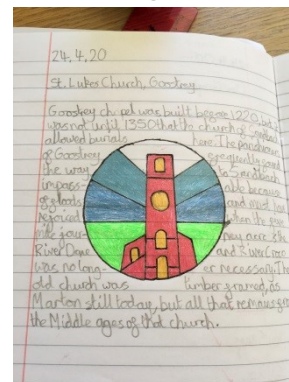 24.4.20
St. Lukes Church, Goostrey
Goostrey chapel was built before 1220, but
was not until 1350 that the church of
allowed burials here. The parishioners
of Goostrey frequently found
the way to Sandbach
impass able because
of floods and must have
rejoiced when the five
mile jour ney across the
River Dane and River Croco
was no long er necessary. The
old church was timber framed, as
Marton still today, but all that remains from
the Middle ages of that church.